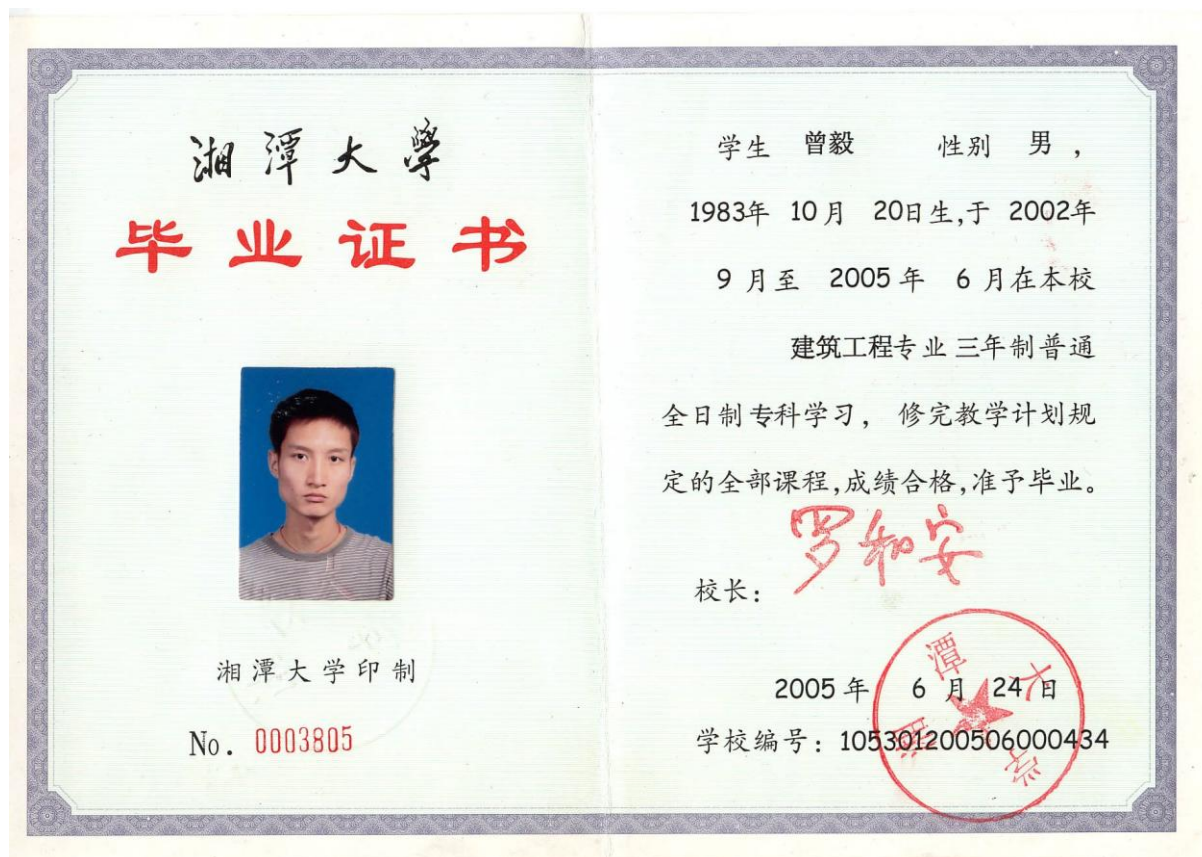 湘潭大學
毕业证书
湘潭大学印制
No. 0003805
学生 曾毅 性别 男，
1983年 10月 20日生,于 2002年
9 月至 2005 年 6 月在本校
建筑工程专业 三年制普通
全日制 专科学习， 修完教学计划规
定的全部课程,成绩合格,准予毕业。
校长： 罗和安
2005 年 6 月 24 日
学校编号：105301200506000434
湘潭大学